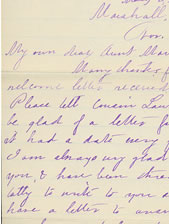 Marshall,
Nov.
My own dear Aunt Mar
Many thanks f
welcome letter received
Please tell cousin Lau
be glad of a letter fro
it had a date very
I am always very glad
you, & have been thre
atly to write to you a
have a letter to answ